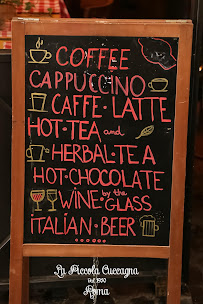 COFFEE
CAPPUCCINO
CAFFE·LATTE
HOT·TEA and
HERBAL·TEA
HOT·CHOCOLATE
WINE by the GLASS
ITALIAN·BEER
La Piccola Cuccagna
est. 1930
Roma